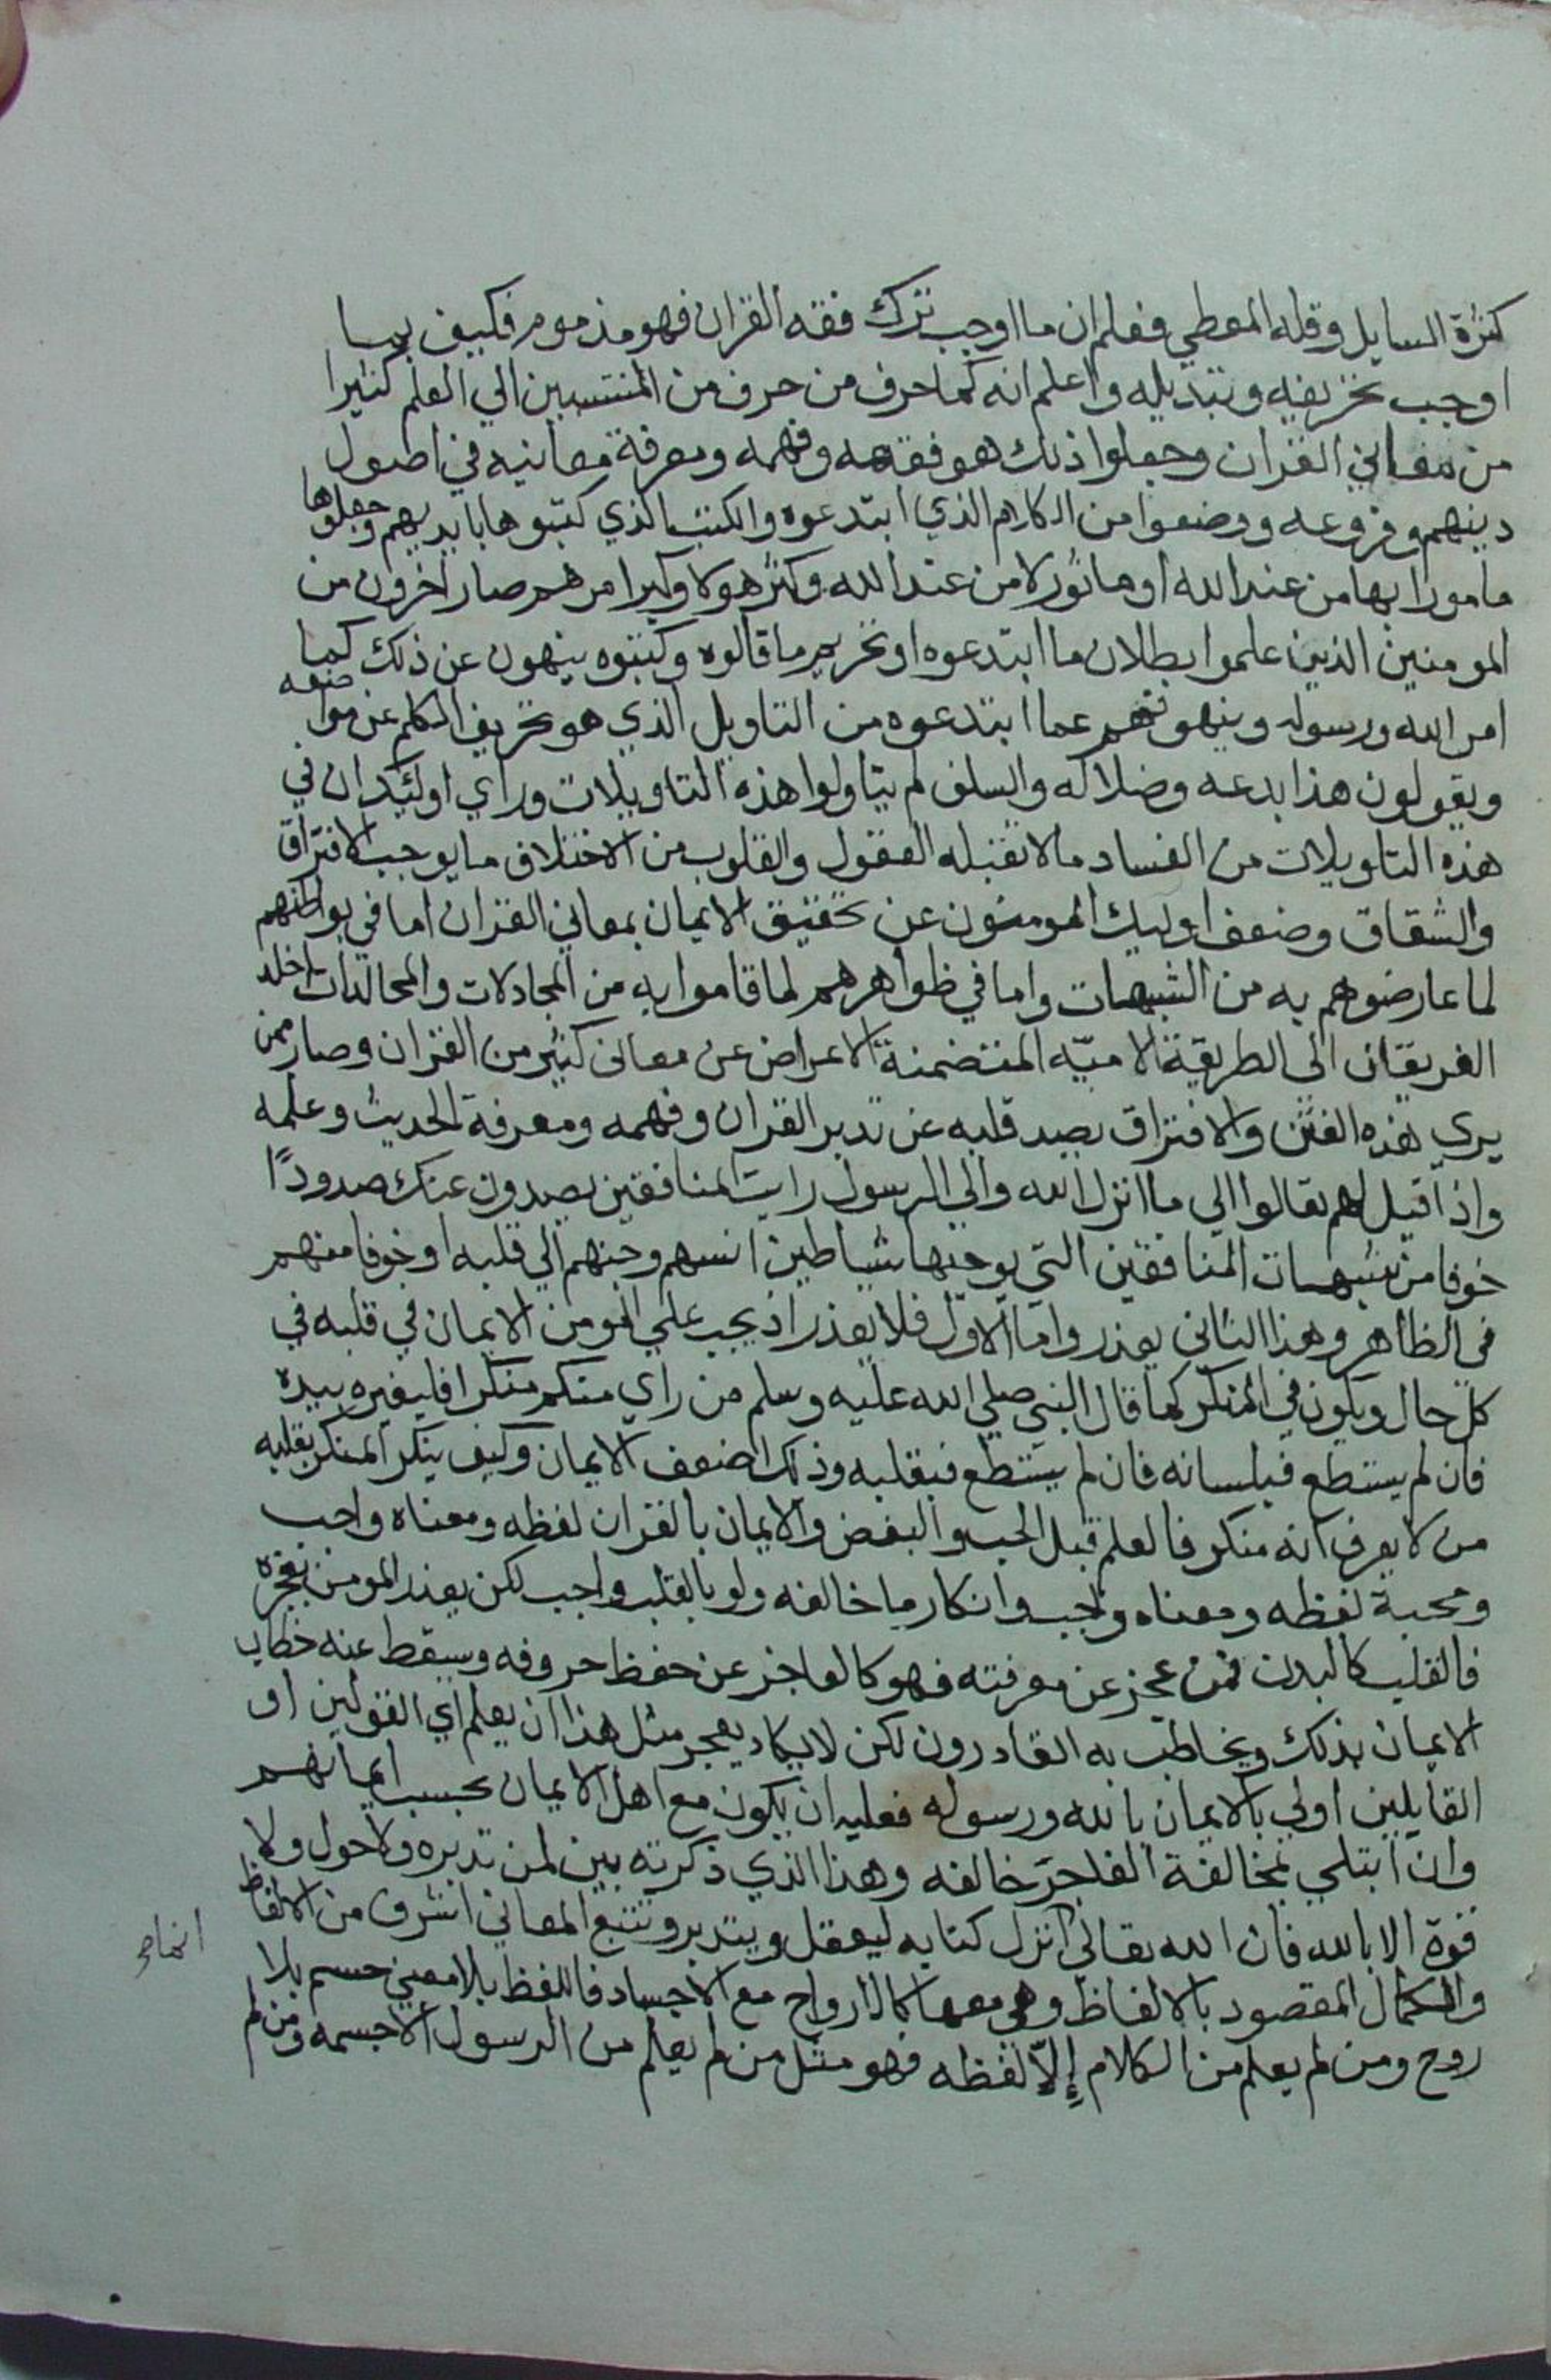 كثرة السايل وقله المعطي فعلم ان ما اوجب ترك فقه القران فهو مذموم فكيف بما
اوجب تحريفه وتبديله واعلم انه كما حرف من حرف من المنتسبين الي العلم كثيرا
من معاني القران وجعلوا ذلك هو فقهه وفهمه ومعرفة معانيه في اصول
دينهم وفروعه ووضعوا من الكلام الذي ابتدعوه والكتب الذي كتبوها بايديهم وجعلوها
مامورا بها من عند الله او ماثورلا من عند الله وكثر هولا وكبرا مرهم صار اخرون من
المومنين الذين علموا بطلان ما ابتدعوه او تحريم ما قالوه وكتبوه ينهون عن ذلك كما
امر الله ورسوله وينهونهم عما ابتدعوه من التاويل الذي هو تحريف الكلم عن مواضعه
ويقولون هذا بدعه وضلاله والسلف لم يتاولوا هذه التاويلات وراي اوليك ان في
هذه التاويلات من الفساد ما لا تقبله العقول والقلوب من الاختلاف ما يوجب الافتراق
والشقاق وضعف اوليك المومنون عن تحقيق الايمان بمعاني القران اما في بواطنهم
لما عارضوهم به من الشبهات واما في ظواهرهم لما قاموا به من المجادلات والمجالدات دخل
الفريقان الى الطريقة الاميه المتضمنة الاعراض عن معانى كثير من القران وصار ممن
يري هذه الفتن والافتراق يصد قلبه عن تدبر القران وفهمه ومعرفة الحديث وعلمه
واذا قيل لهم تعالوا الي ما انزل الله والي الرسول رايت المنافقين يصدون عنك صدودًا
خوفا من شبهات المنافقين التي يوحيها شياطين انسهم وجنهم الي قلبه او خوفا منهم
فى الظاهر وهذا الثانى يعذر واما الاول فلا يعذر اذ يجب علي المومن الايمان في قلبه في
كل حال ويكون في المنكر كما قال النبي صلي الله عليه وسلم من راي منكم منكرا فليغيره بيده
فان لم يستطع فبلسانه فان لم يستطع فبقلبه وذلك اضعف الايمان وكيف ينكر المنكر بقلبه
من لا يعرف انه منكر فالعلم قبل الحب والبغض والايمان بالقران لفظه ومعناه واجب
ومحبة لفظه ومعناه واجب وانكار ما خالفه ولو بالقلب واجب لكن يعذر المومن بعجزه
فالقلب كالبدن فمن عجز عن معرفته فهو كالعاجز عن حفظ حروفه وسيقط عنه خطاب
الايمان بذلك ويخاطب به القادرون لكن لا يكاد يعجر مثل هذا ان يعلم اي القولين او
القايلين اولي بالايمان بالله ورسوله فعليه ان يكون مع اهل الايمان بحسب ايمانهم
وان ابتلي بمخالفة الفاجر خالفه وهذا الذي ذكرته بين لمن تدبره ولا حول ولا
قوة الا بالله فان الله تعالى انزل كتابه ليعقل ويتدبر وتتبع المعاني اشرف من الالفاظ
والكمال المقصود بالالفاظ وهي معها كالارواح مع الاجساد فاللفظ بلا معني جسم بلا
روح ومن لم يعلم من الكلام إلا لفظه فهو مثل من لم يعلم من الرسول الا جسمه ومن لم